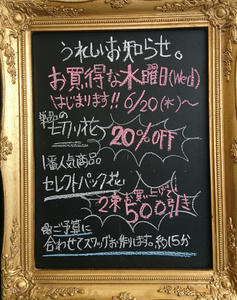 うれしいお知らせ。
お買得な水曜日(Wed)
はじまります!! 6/20(水)〜
切り花
20%OFF
1番人気商品
セレクトパック花
2束お買い上げで
500引き
ご予算に
合わせてスワッグお作ります。約15分